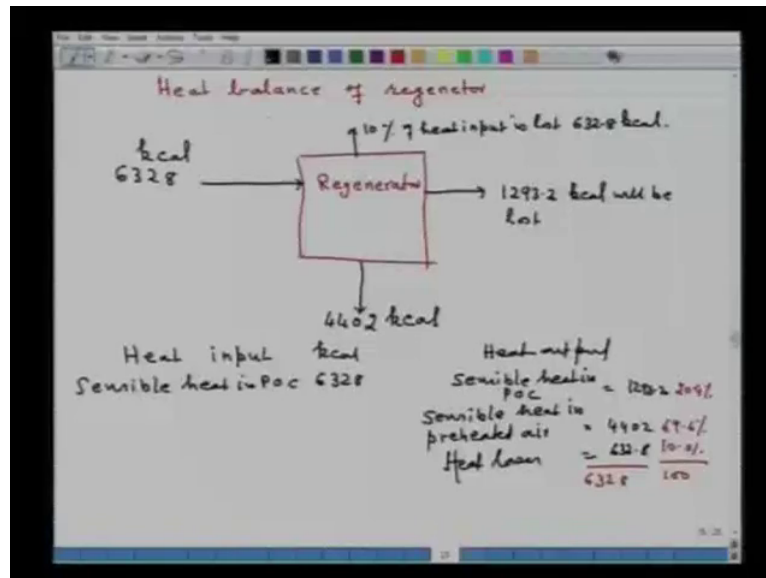 Heat balance of regenetor
10% of heat input is lost 632.8 kcal.
kcal
6328
Regenerator
1293.2 kcal will be
lost
4402 kcal
Heat input kcal
Sensible heat in POC 6328
Heat output
Sensible heat in
POC = 1293.2 20.4%
Sensible heat in
preheated air = 4402 69.6%
Heat losses = 632.8 10.0%
6328 100